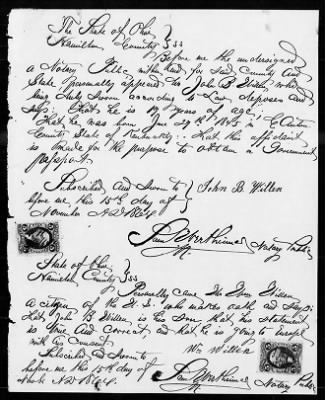 The State of Ohio
Hamilton County } SS
Before me the undersigned
a Notary Public within and for said county and
State personally appeared John B Willen who
being duly sworn according to Law deposes and
says: that he is 19 years of age
that he was born
County State of Kentucky: that this affidavit
is made for the purpose to obtain a Government
passport.
Subscribed and Sworn to } John B. Willen
before me this 15th day of
November AD 1864
Notary Public
State of Ohio
Hamilton County } SS
Personally came
a citizen of the U.S. who makes oath and says:
that John B Willen is his Son that his statement
is true and correct, and that he is going to
with his consent.
Wm Willen
Subscribed and Sworn to
before me this 15th day of
AD 1864.
Notary Public